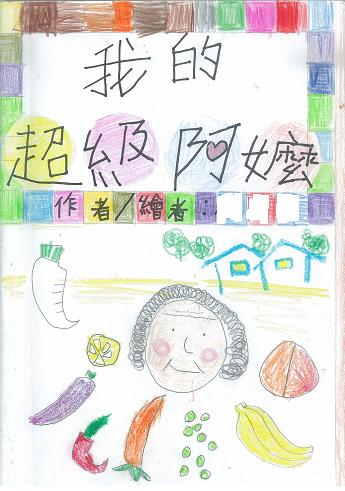 我的
超級阿嬤
作者/繪者: